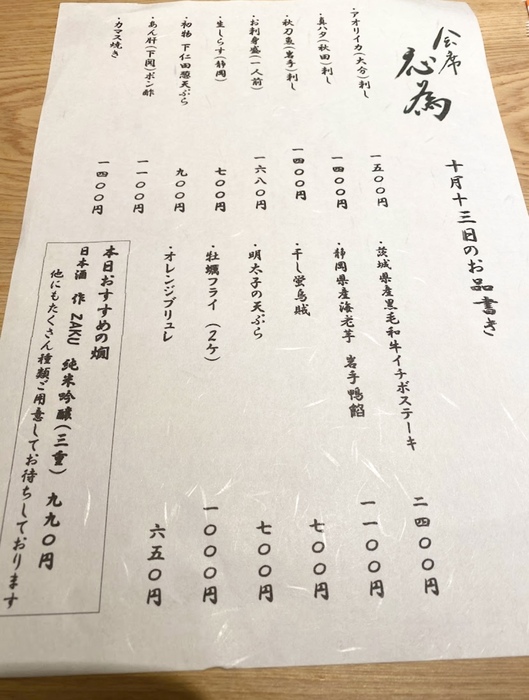 会席
志為
十月十三日のお品書き
・アオリイカ(大分)刺し 一五〇〇円
・真ハタ(秋田)刺し 一四〇〇円
・秋刀魚(岩手)刺し 一四〇〇円
・お刺身盛(一人前) 一六八〇円
・生しらす(静岡) 七〇〇円
・初物 下仁田葱天ぷら 九〇〇円
・あん肝(下関)ポン酢 一一〇〇円
・カマス焼き 一四〇〇円
・茨城県産黒毛和牛イチボステーキ 二四〇〇円
・静岡県産海老芋 岩手鴨餡 一一〇〇円
・干し蛍烏賊 七〇〇円
・明太子の天ぷら 七〇〇円
・牡蠣フライ (2ケ) 一〇〇〇円
・オレンジブリュレ 六五〇円
本日おすすめの燗
日本酒 作 ZAKU 純米吟醸(三重) 九九〇円
他にもたくさん種類ご用意してお待ちしております